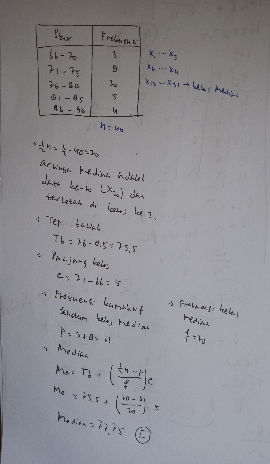 Skor Frekuensi
66 - 70 3 x₁ ... x₃
71 - 75 8 x₄ ... x₁₁
76 - 80 20 x₁₂ ... x₃₁ → kelas median
81 - 85 5
86 - 90 4
n = 40
½n = ½ · 40 = 20
artinya median adalah
data ke-20 (x₂₀) dan
terletak di kelas ke 3.
Tepi bawah
Tb = 76 - 0.5 = 75,5
Panjang kelas
c = 71 - 66 = 5
Frekuensi kumulatif
sebelum kelas median
F = 3 + 8 = 11
Frekuensi kelas
median
f = 20
Median
Me = Tb + (½n - F / f) c
Me = 75,5 + (20 - 11 / 20) · 5
Median = 77,75